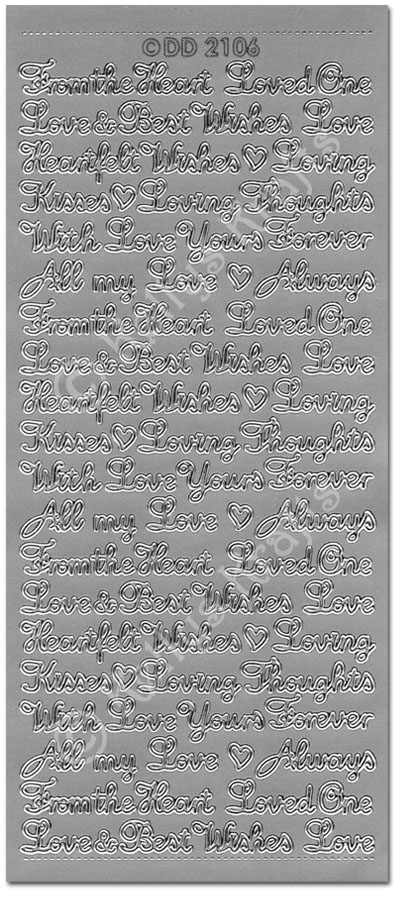 ©DD 2106
From the Heart Loved One
Love & Best Wishes Love
Heartfelt Wishes ♡ Loving
Kisses ♡ Loving Thoughts
With Love Yours Forever
All my Love ♡ Always
From the Heart Loved One
Love & Best Wishes Love
Heartfelt Wishes ♡ Loving
Kisses ♡ Loving Thoughts
With Love Yours Forever
All my Love ♡ Always
From the Heart Loved One
Love & Best Wishes Love
Heartfelt Wishes ♡ Loving
Kisses ♡ Loving Thoughts
With Love Yours Forever
All my Love ♡ Always
From the Heart Loved One
Love & Best Wishes Love